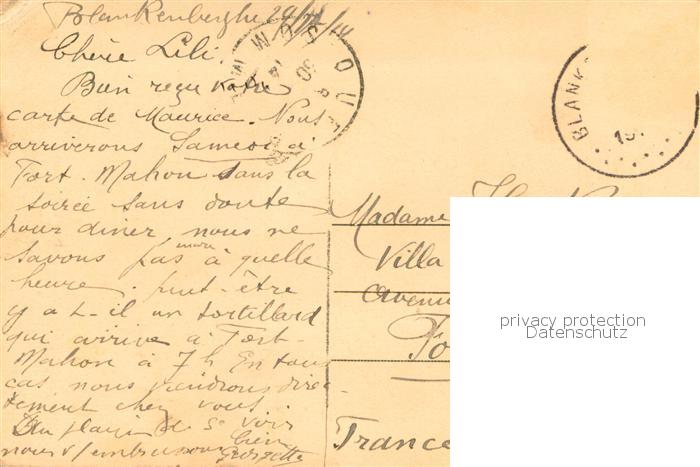 Blankenberghe 29/7/14
Chère Lili.
Bien reçu votre
carte de Maurice. Nous
arriverons Samedi à
Fort-Mahon dans la
soirée sans doute
pour diner nous ne
savons pas à quelle
heure. peut-être
y a t-il un tortillard
qui arrive à Fort-
Mahon à 7h En tous
cas nous viendrons direc
tement chez vous.
Au plaisir de se voir
nous v/embrassons bien
Georgette
Madame
Villa
Avenu
Fo
France
BLANK
19
privacy protection
Datenschutz